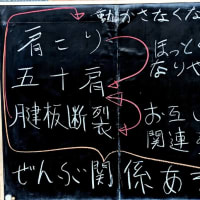 動かさなくな
肩こり
ほっと
なりや
五十肩
腱板断裂
お互い
関連
ぜんぶ関係あ